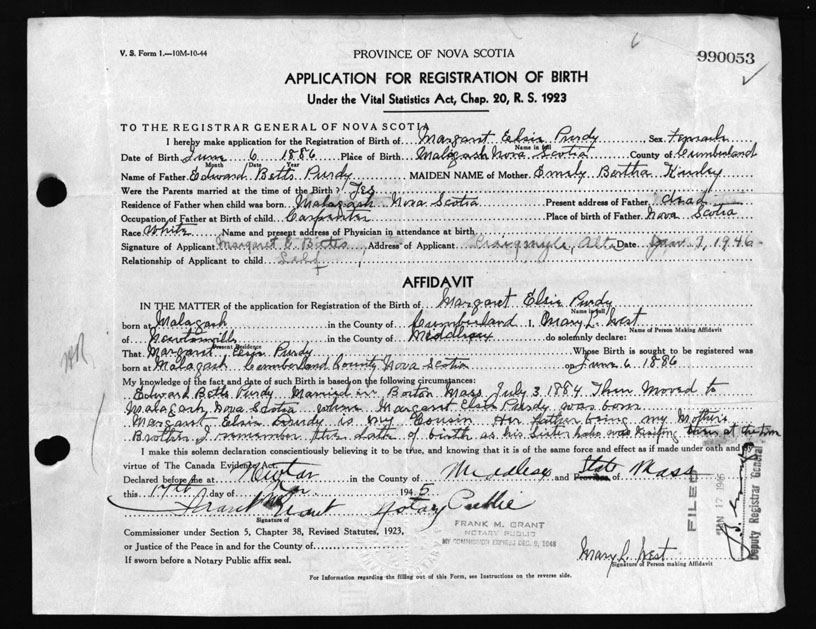 V. S. Form 1.—10M-10-44
PROVINCE OF NOVA SCOTIA
6
990053
APPLICATION FOR REGISTRATION OF BIRTH
Under the Vital Statistics Act, Chap. 20, R. S. 1923
TO THE REGISTRAR GENERAL OF NOVA SCOTIA
I hereby make application for the Registration of Birth of Margaret Elsie Purdy Sex Female
Name in full
Date of Birth June 6 1886 Place of Birth Malagash Nova Scotia County of Cumberland
Month Date Year
Name of Father Edward Betts Purdy MAIDEN NAME of Mother Emily Bertha
Were the Parents married at the time of the Birth? Yes
Residence of Father when child was born Malagash Nova Scotia Present address of Father dead
Occupation of Father at Birth of child Carpenter Place of birth of Father Nova Scotia
Race White Name and present address of Physician in attendance at birth
Signature of Applicant Margaret E. Address of Applicant Craigmyle, Alta Date Jan. 7, 1946
Relationship of Applicant to child Self
AFFIDAVIT
IN THE MATTER of the application for Registration of the Birth of Margaret Elsie Purdy
Name in full
born at Malagash in the County of Cumberland I, Mary L. West
Name of Person Making Affidavit
of Newtonville in the County of Middlesex do solemnly declare:
Present Residence
That Margaret Elsie Purdy Whose Birth is sought to be registered was
born at Malagash Cumberland County Nova Scotia on June 6 1886
My knowledge of the fact and date of such Birth is based on the following circumstances:
Edward Betts Purdy Married in Boston Mass July 3 1884 Then Moved to
Malagash Nova Scotia where Margaret Elsie Purdy was born
Margaret Elsie Purdy is my Cousin Her father being my Mother's
Brother, I remember the date of birth as his Sister was visiting them at the time
I make this solemn declaration conscientiously believing it to be true, and knowing that it is of the same force and effect as if made under oath and by
virtue of The Canada Evidence Act.
Declared before me at Newton in the County of Middlesex State Province of Mass
this 17th day of 194 5
Frank M Grant Notary Public
Signature of
Commissioner under Section 5, Chapter 38, Revised Statutes, 1923,
or Justice of the Peace in and for the County of
If sworn before a Notary Public affix seal.
FRANK M. GRANT
NOTARY PUBLIC
MY COMMISSION EXPIRES DEC. 9, 1948
Mary L. West
Signature of Person making Affidavit
FILED
JAN 17 1946
Deputy Registrar General
For Information regarding the filling out of this Form, see Instructions on the reverse side.